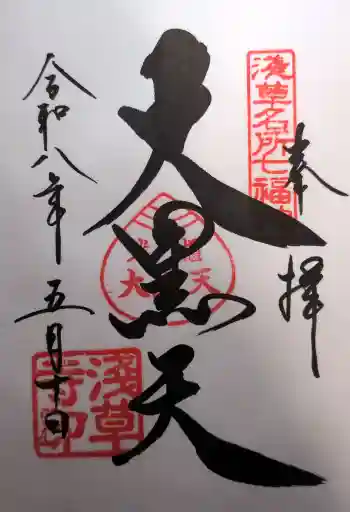 奉拝
浅草名所七福
大黒天
大黒天
令和八年五月十日
浅草寺印